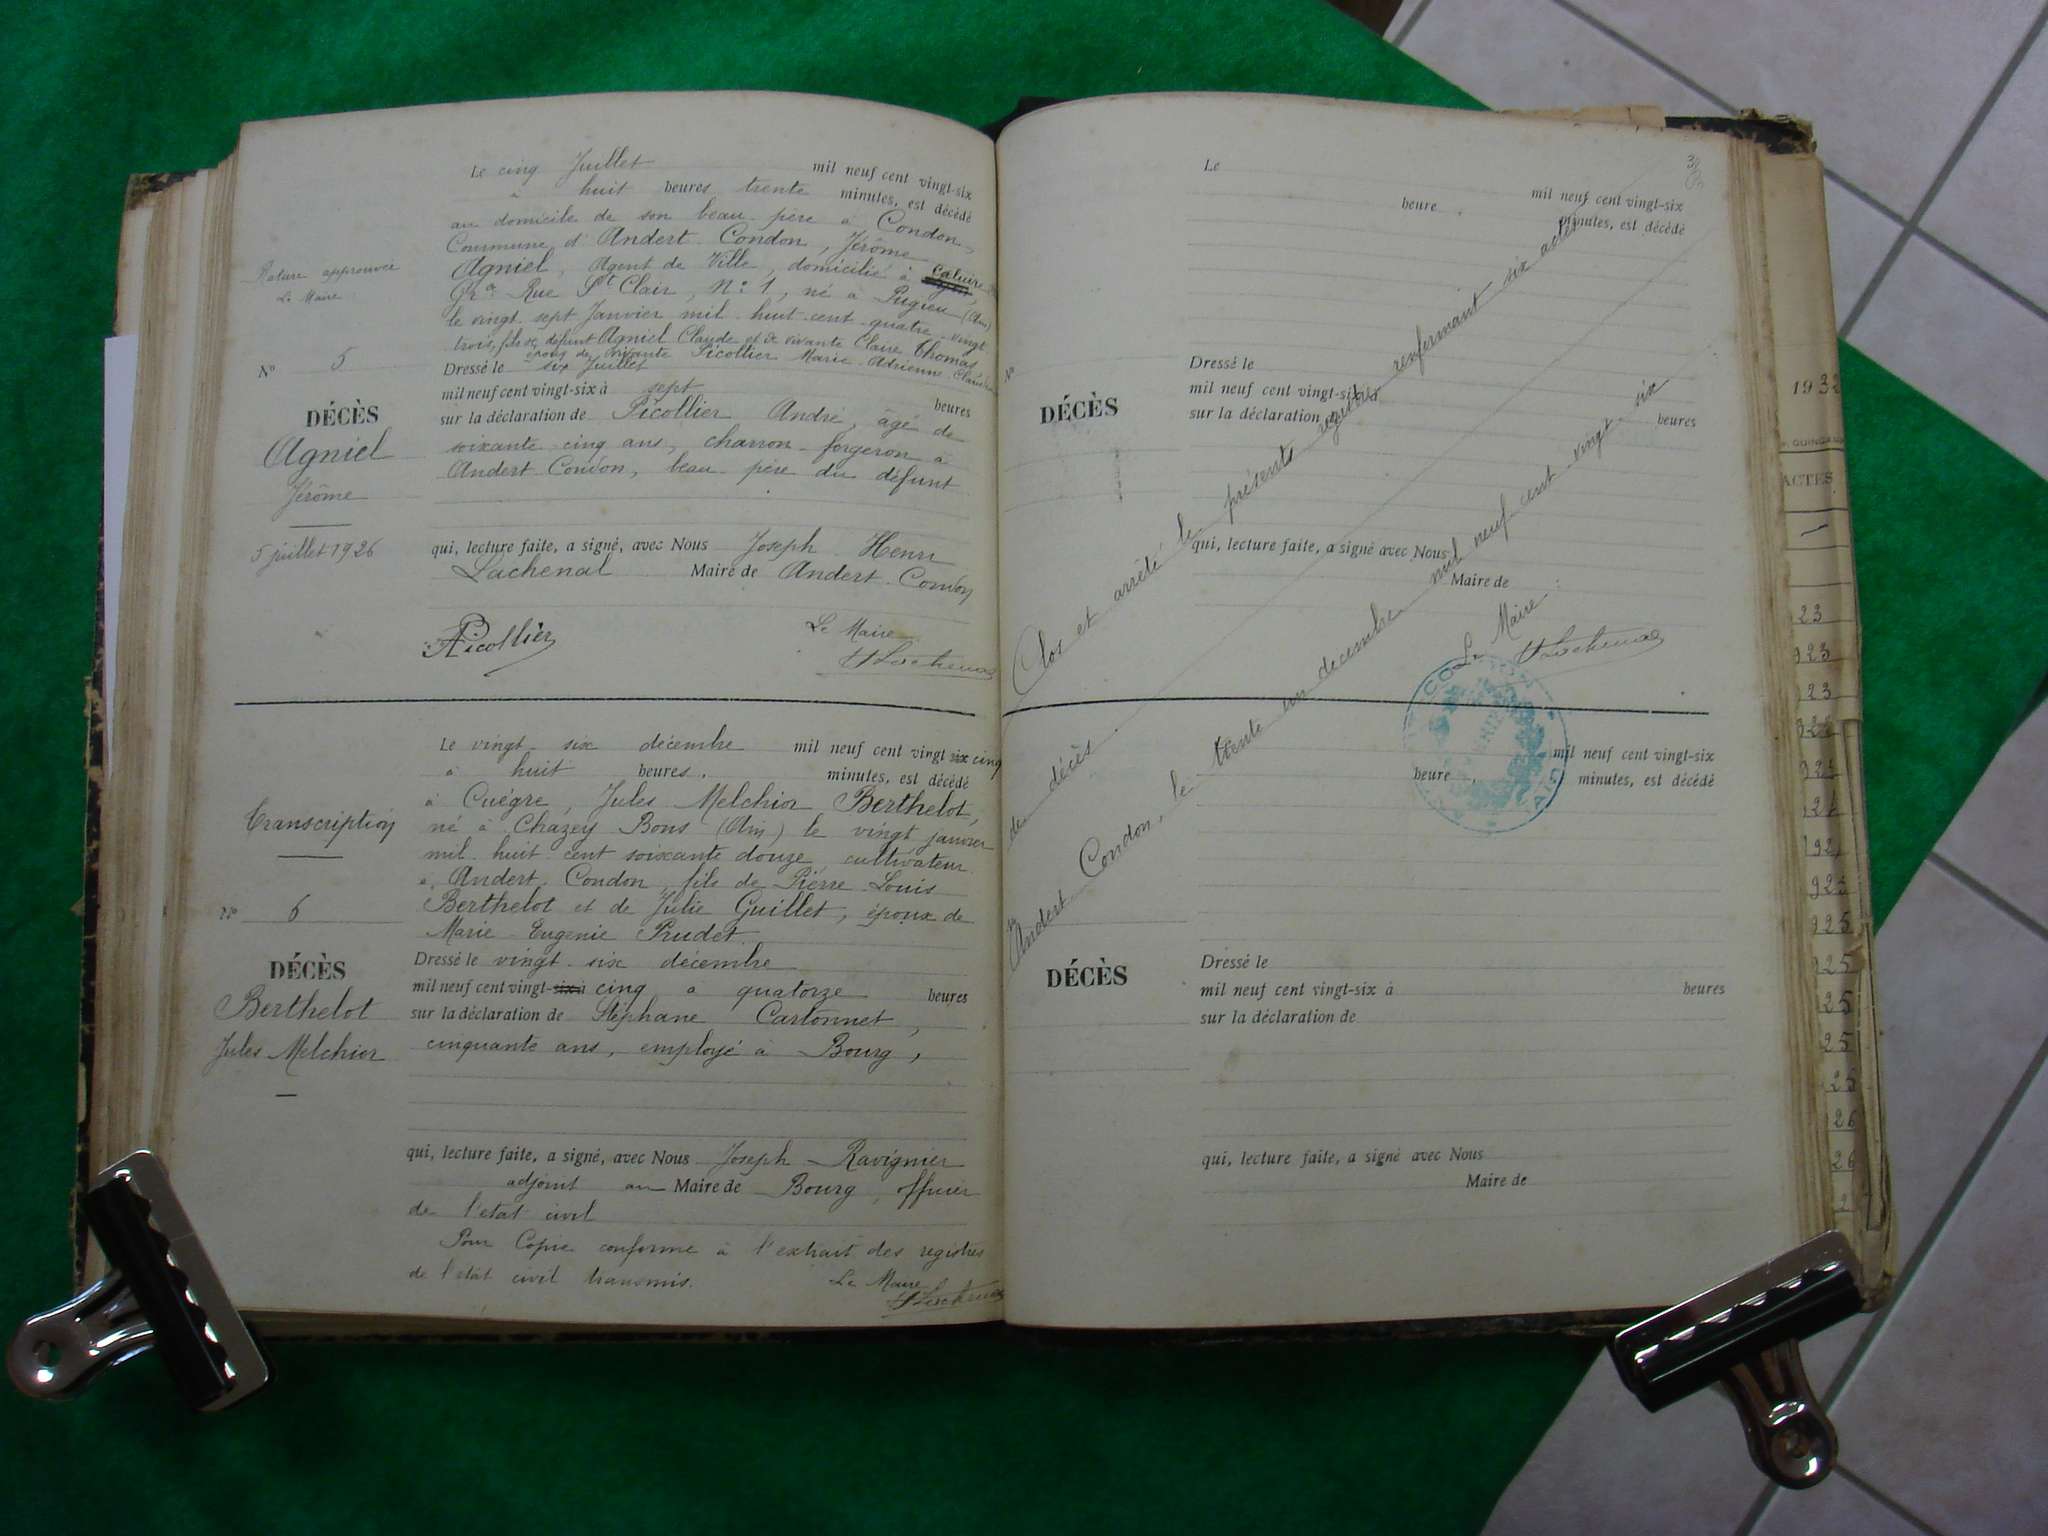 Le cinq Juillet mil neuf cent vingt-six
à huit heures trente minutes, est décédé
au domicile de son beau-père à Condon,
Commune d'Andert-Condon, Jérôme
Agniel, Agent de Ville, domicilié à Caluire
Gr. Rue St Clair, N° 1, né à Pugieu (Ain)
le vingt-sept Janvier mil huit-cent-quatre-vingt
trois, fils de défunt Agniel Claude et de vivante Claire Thomas
époux de vivante Picollier Marie Adrienne
Rature approuvée
Le Maire
N° 5
DÉCÈS
Agniel
Jérôme
5 juillet 1926
Dressé le six Juillet
mil neuf cent vingt-six à sept heures
sur la déclaration de Picollier André, âgé de
soixante-cinq ans, charron-forgeron à
Andert-Condon, beau-père du défunt
qui, lecture faite, a signé, avec Nous Joseph Henri
Lachenal Maire de Andert-Condon
Picollier
Le Maire
H Lachenal
Le vingt-six décembre mil neuf cent vingt-six cinq
à huit heures, minutes, est décédé
à Cuègre, Jules Melchior Berthelot,
né à Chazey Bons (Ain) le vingt janvier
mil huit cent soixante douze, cultivateur
à Andert-Condon, fils de Pierre Louis
Berthelot et de Julie Guillet, époux de
Marie-Eugenie Prudet
Transcription
N° 6
DÉCÈS
Berthelot
Jules Melchior
Dressé le vingt-six décembre
mil neuf cent vingt-six à cinq à quatorze heures
sur la déclaration de Stéphane Cartonnet,
cinquante ans, employé à Bourg,
qui, lecture faite, a signé, avec Nous Joseph Ravignier
adjoint au Maire de Bourg, officier
de l'etat civil
Pour Copie conforme à l'extrait des registres
de l'état civil transmis.
Le Maire
H Lachenal
Le mil neuf cent vingt-six
heure minutes, est décédé
N°
DÉCÈS
Dressé le
mil neuf cent vingt-six à heures
sur la déclaration de
qui, lecture faite, a signé avec Nous
Maire de
Clos et arrêté le présent registre renfermant six actes
de décès
Andert-Condon, le trente un décembre mil neuf cent vingt-six
Le Maire:
H Lachenal
mil neuf cent vingt-six
heure minutes, est décédé
N°
DÉCÈS
Dressé le
mil neuf cent vingt-six à heures
sur la déclaration de
qui, lecture faite, a signé avec Nous
Maire de
1932
ACTES